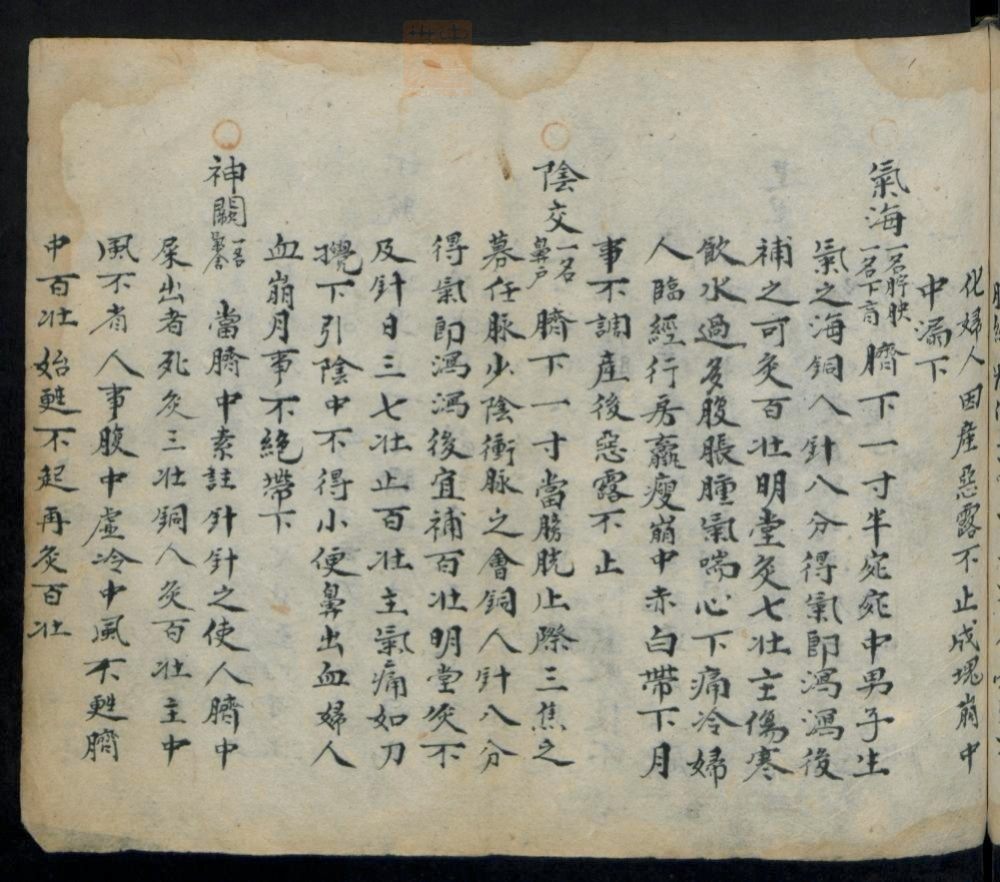 化婦人因產惡露不止成塊崩中
中漏下
氣海一名脖胦一名下肓臍下一寸半宛宛中男子生
氣之海銅人針八分得氣即瀉瀉後
補之可灸百壯明堂灸七壯主傷寒
飲水過多腹脹腫氣喘心下痛冷婦
人臨經行房羸瘦崩中赤白帶下月
事不調產後惡露不止
陰交一名鼻戶臍下一寸當膀胱上際三焦之
募任脉少陰衝脉之會銅人針八分
得氣即瀉瀉後宜補百壯明堂灸不
及針日三七壯止百壯主氣痛如刀
攪下引陰中不得小便鼻出血婦人
血崩月事不絕帶下
神闕一名當臍中素註針針之使人臍中
屎出者死灸三壯銅人灸百壯主中
風不省人事腹中虛冷中風不甦臍
中百壯始甦不起再灸百壯